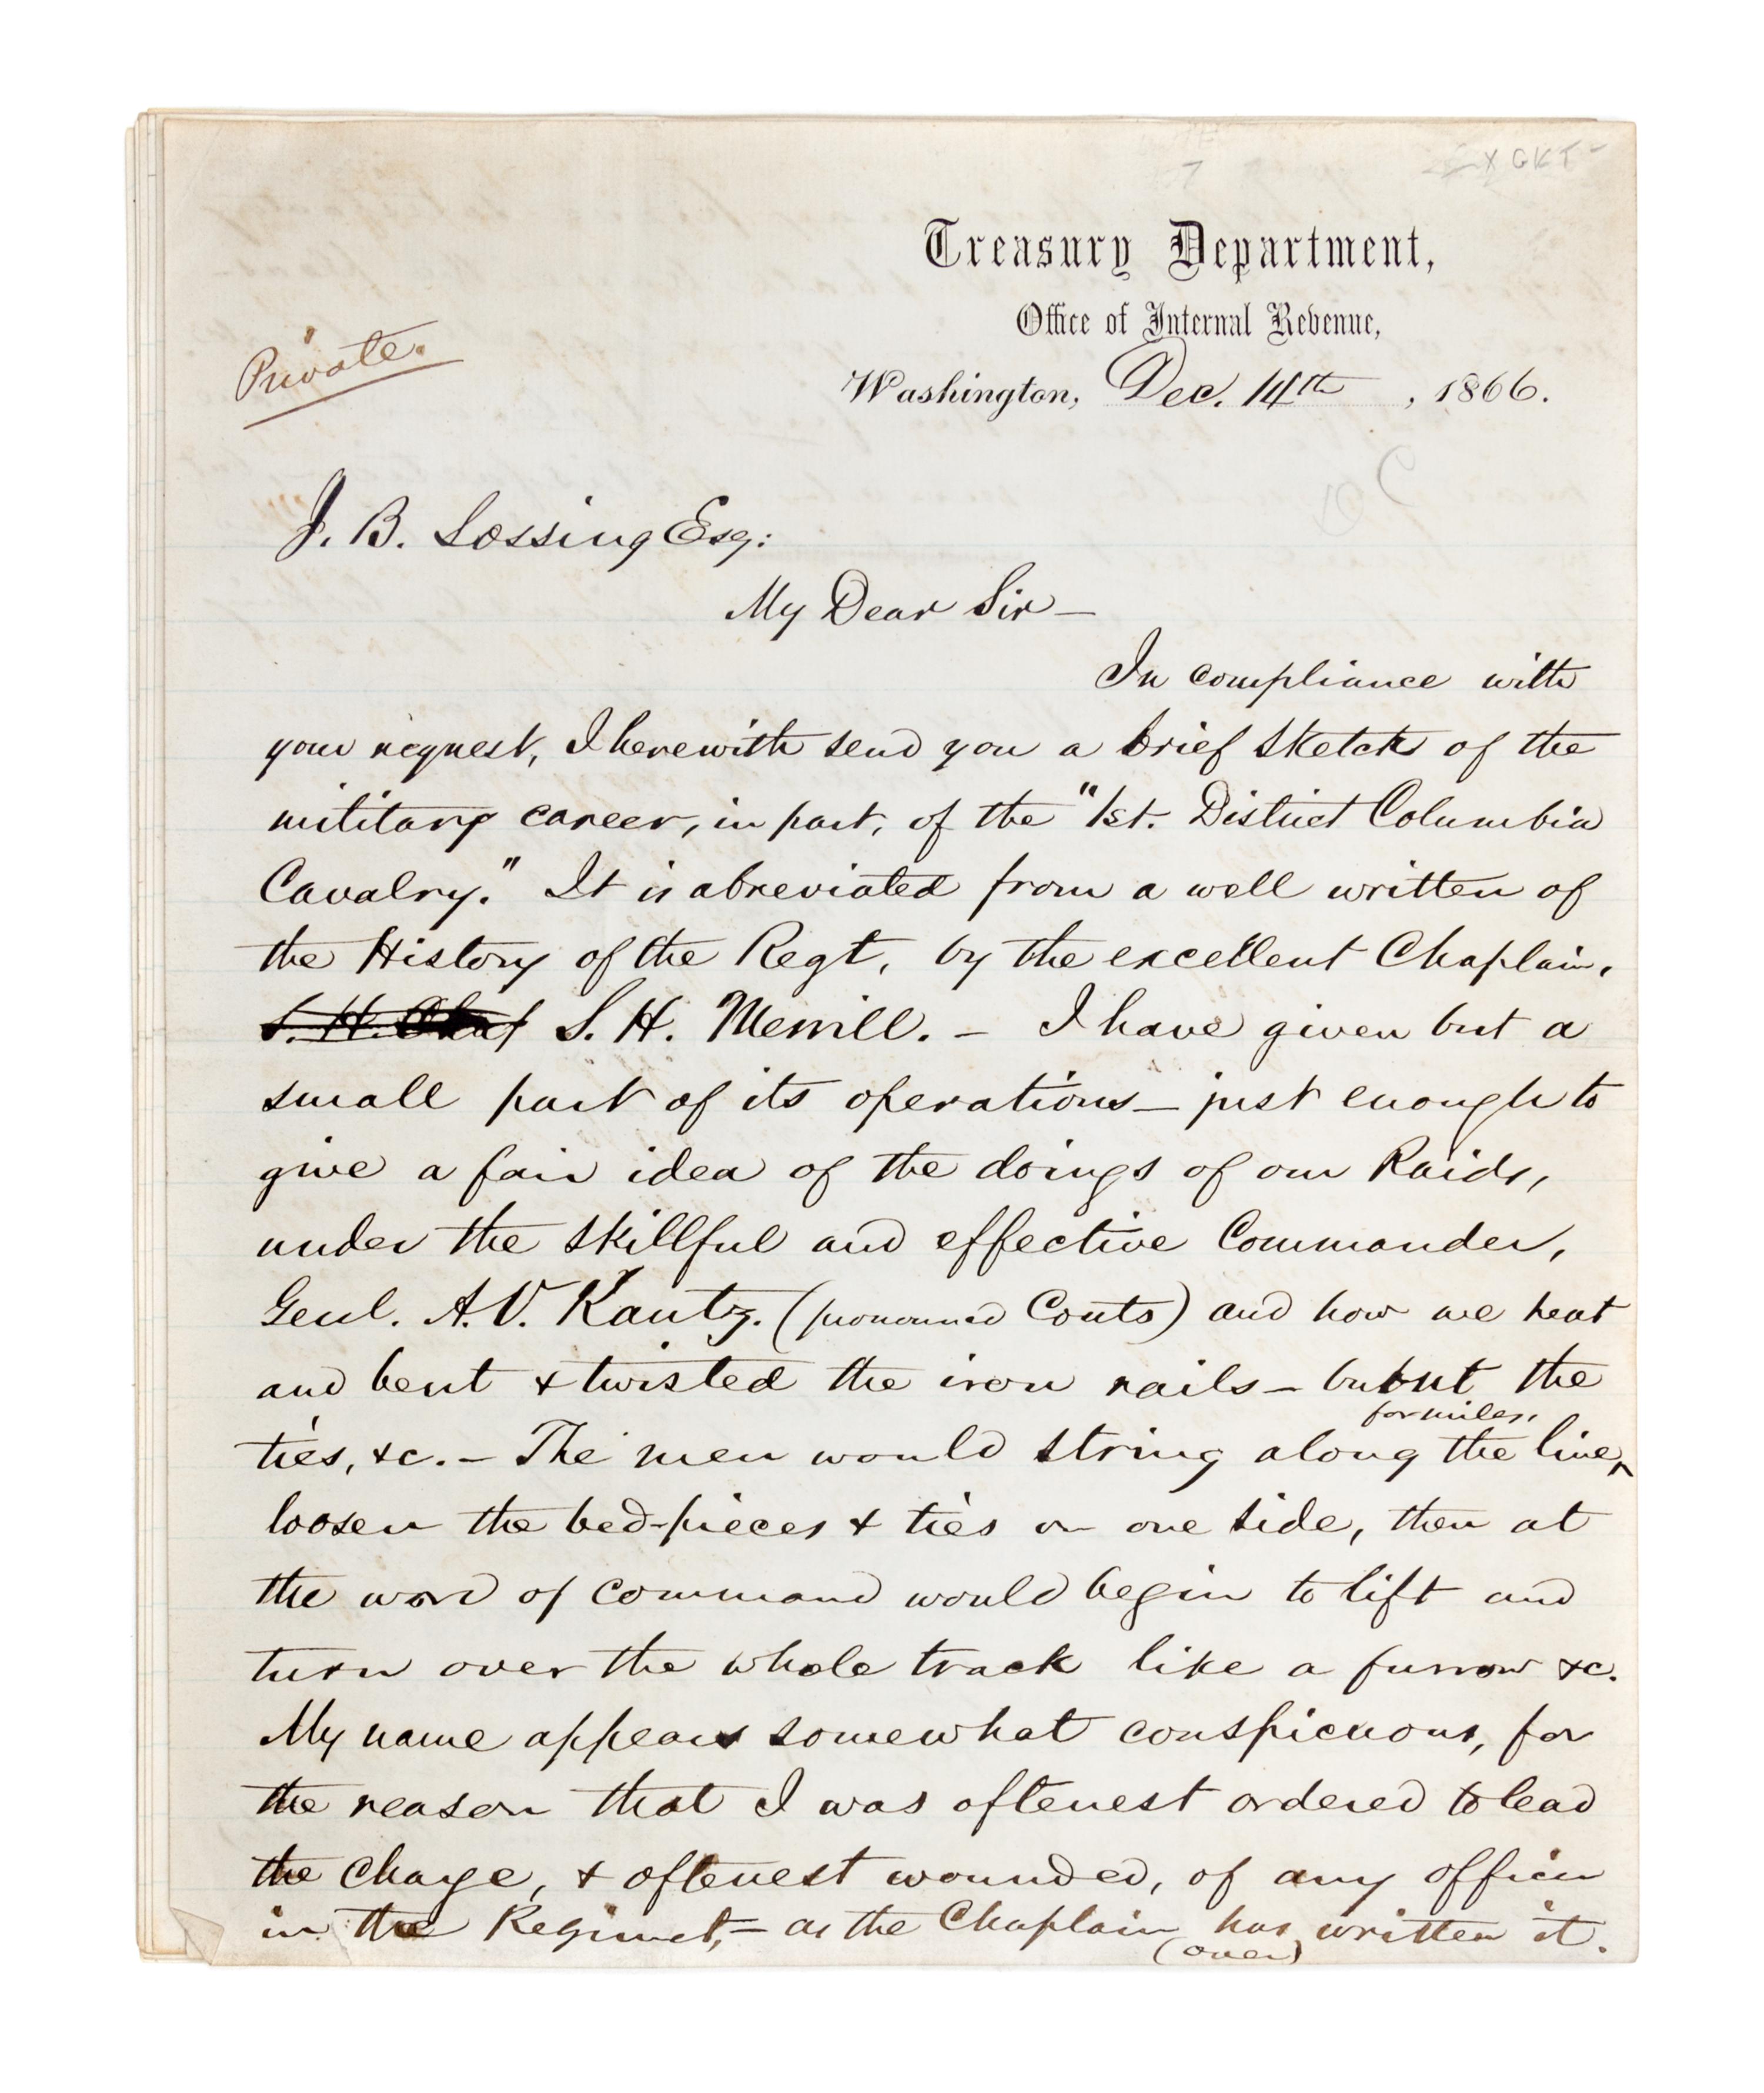 X GKT -
7
Treasury Department,
Office of Internal Revenue,
Private.
Washington, Dec. 14th, 1866.
J. B. Lossing Esq:
My Dear Sir —
In compliance with
your request, I herewith send you a brief sketch of the
military career, in part, of the "1st. District Columbia
Cavalry." It is abreviated from a well written of
the History of the Regt, by the excellent Chaplain,
S. H. S. H. Merrill. — I have given but a
small part of its operations — just enough to
give a fair idea of the doings of our Raids,
under the skillful and effective Commander,
Genl. A. V. Kautz. (pronounced Couts) and how we heat
and bent & twisted the iron rails — burnt the
ties, &c. — The men would string along the line, for miles,
loosen the bed-pieces & ties on one side, then at
the word of command would begin to lift and
turn over the whole track like a furrow &c.
My name appears somewhat conspicuous, for
the reason that I was oftenest ordered to lead
the charge, & oftenest wounded, of any officer
in the Regiment, — as the Chaplain has written it.
(over)